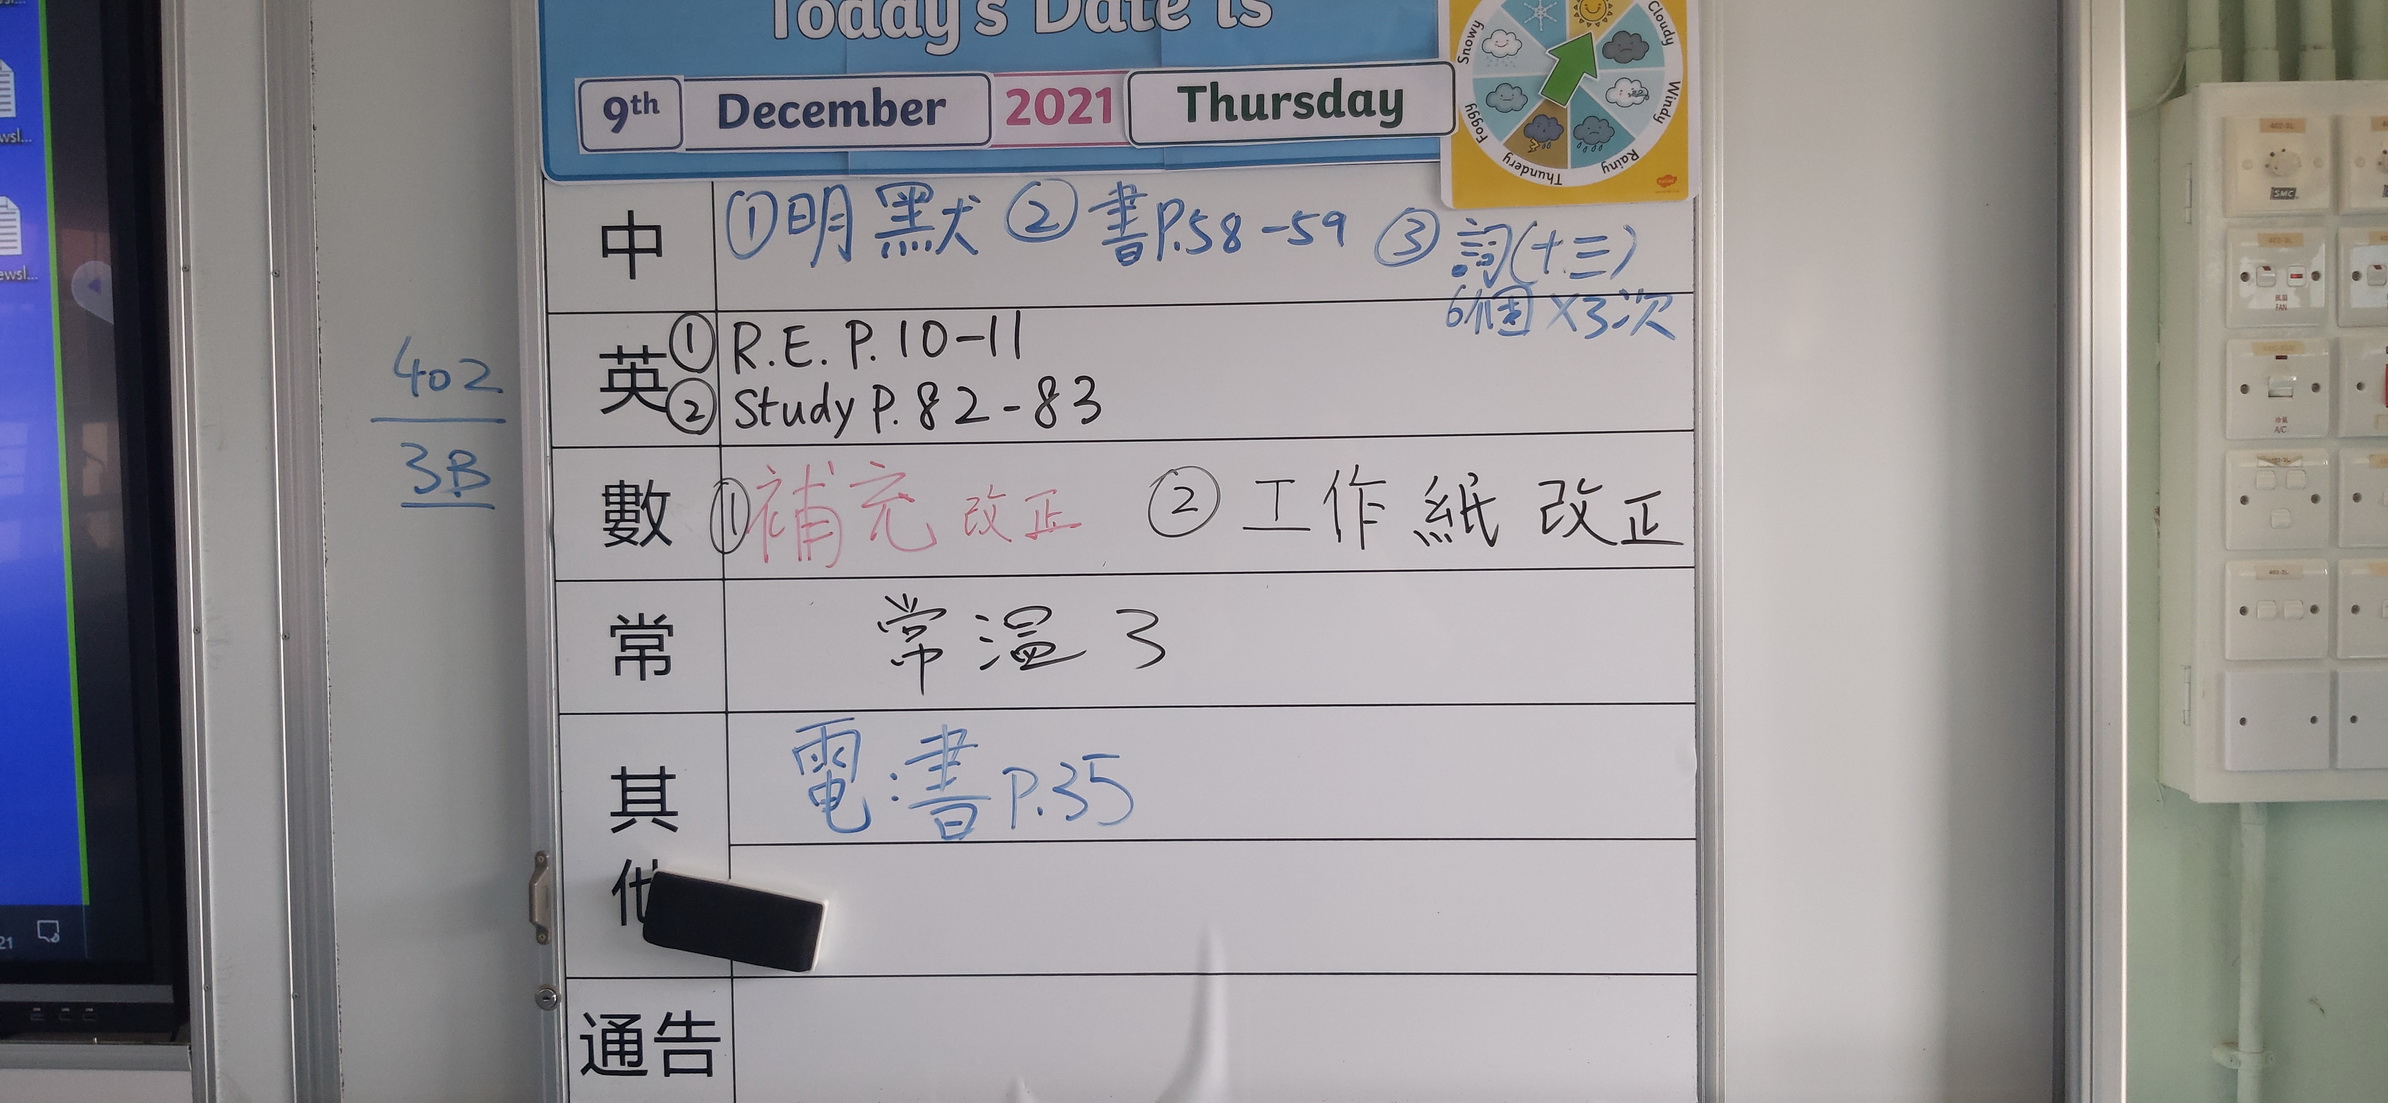 Today's Date is
9th December 2021 Thursday
Snowy
Cloudy
Windy
Rainy
Thundery
Foggy
中 ①明默 ②書P.58-59 ③詞(十三)
6個×3次
英 ① R.E. P.10-11
② Study P.82-83
數 ①補充改正 ②工作紙改正
常 常溫3
其他 電:書P.35
通告
402
3B
wsl...
ewsl...
21
SMC
FAN
A/C